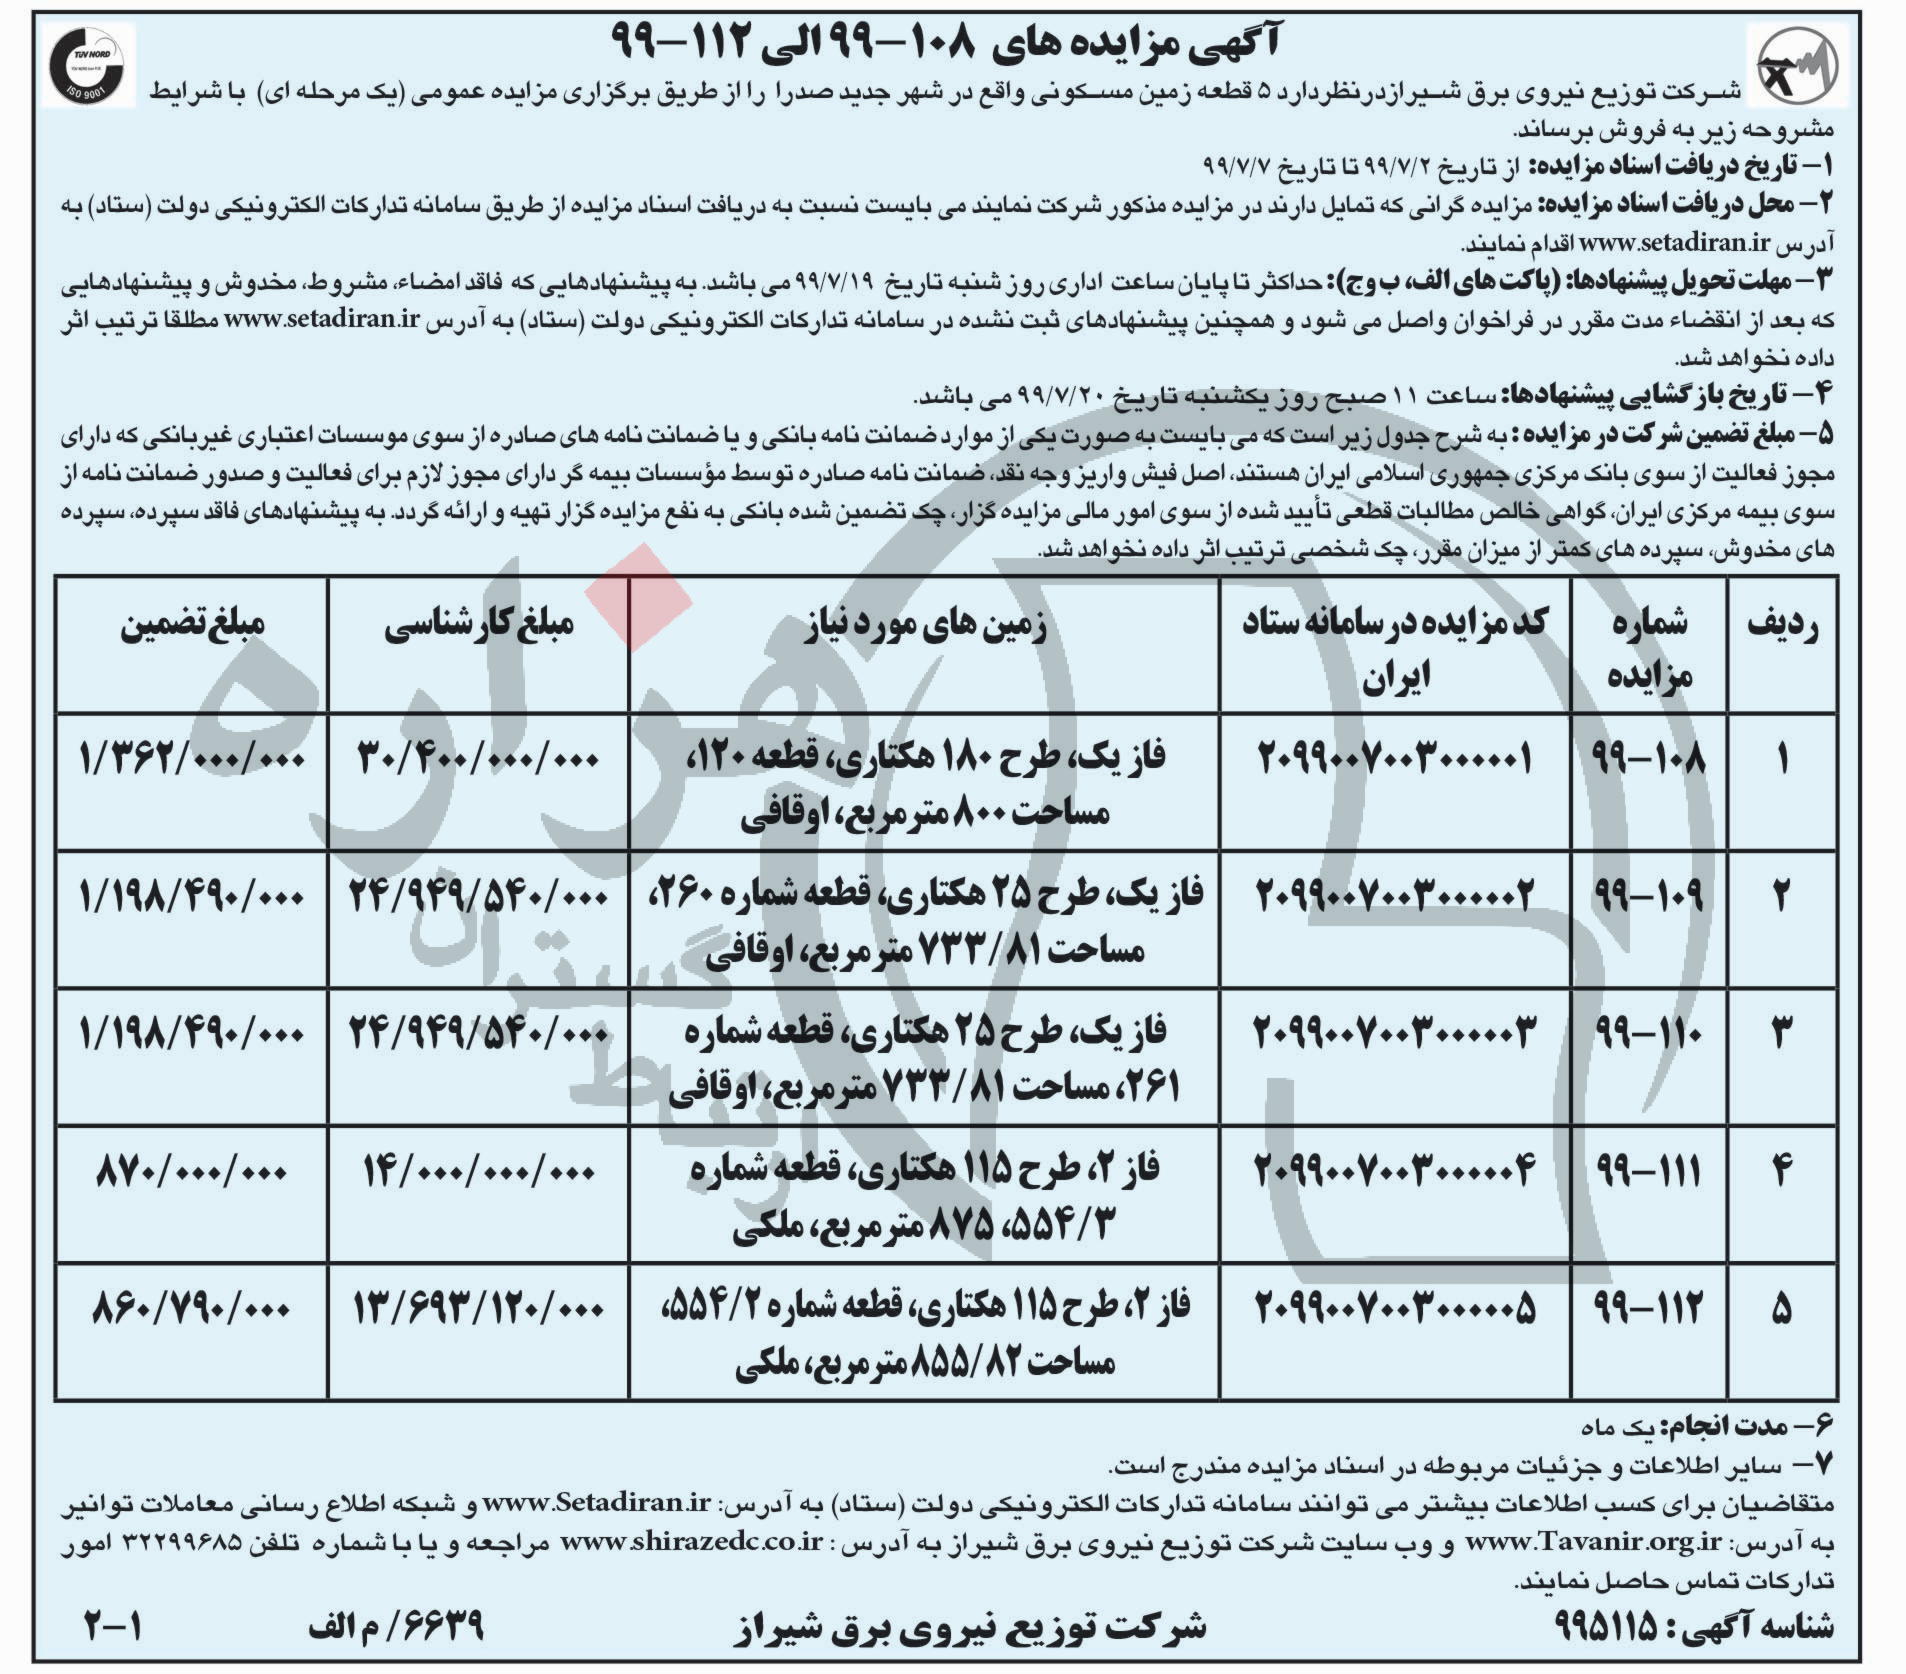 آگهی مزایده های ۱۰۸-۹۹ الی ۱۱۲-۹۹
TÜV NORD
ISO 9001
شرکت توزیع نیروی برق شیراز درنظر دارد ۵ قطعه زمین مسکونی واقع در شهر جدید صدرا را از طریق برگزاری مزایده عمومی (یک مرحله ای) با شرایط
مشروحه زیر به فروش برساند.
۱- تاریخ دریافت اسناد مزایده: از تاریخ ۹۹/۷/۲ تا تاریخ ۹۹/۷/۷
۲- محل دریافت اسناد مزایده: مزایده گرانی که تمایل دارند در مزایده مذکور شرکت نمایند می بایست نسبت به دریافت اسناد مزایده از طریق سامانه تدارکات الکترونیکی دولت (ستاد) به
آدرس www.setadiran.ir اقدام نمایند.
۳- مهلت تحویل پیشنهادها: (پاکت های الف، ب و ج): حداکثر تا پایان ساعت اداری روز شنبه تاریخ ۹۹/۷/۱۹ می باشد. به پیشنهادهایی که فاقد امضاء، مشروط، مخدوش و پیشنهادهایی
که بعد از انقضاء مدت مقرر در فراخوان واصل می شود و همچنین پیشنهادهای ثبت نشده در سامانه تدارکات الکترونیکی دولت (ستاد) به آدرس www.setadiran.ir مطلقا ترتیب اثر
داده نخواهد شد.
۴- تاریخ بازگشایی پیشنهادها: ساعت ۱۱ صبح روز یکشنبه تاریخ ۹۹/۷/۲۰ می باشد.
۵- مبلغ تضمین شرکت در مزایده: به شرح جدول زیر است که می بایست به صورت یکی از موارد ضمانت نامه بانکی و یا ضمانت نامه های صادره از سوی موسسات اعتباری غیربانکی که دارای
مجوز فعالیت از سوی بانک مرکزی جمهوری اسلامی ایران هستند، اصل فیش واریز وجه نقد، ضمانت نامه صادره توسط مؤسسات بیمه گر دارای مجوز لازم برای فعالیت و صدور ضمانت نامه از
سوی بیمه مرکزی ایران، گواهی خالص مطالبات قطعی تأیید شده از سوی امور مالی مزایده گزار، چک تضمین شده بانکی به نفع مزایده گزار تهیه و ارائه گردد. به پیشنهادهای فاقد سپرده، سپرده
های مخدوش، سپرده های کمتر از میزان مقرر، چک شخصی ترتیب اثر داده نخواهد شد.
ردیف شماره مزایده کد مزایده در سامانه ستاد ایران زمین های مورد نیاز مبلغ کارشناسی مبلغ تضمین
۱ ۹۹-۱۰۸ ۲۰۹۹۰۰۷۰۰۳۰۰۰۰۰۱ فاز یک، طرح ۱۸۰ هکتاری، قطعه ۱۲۰، ۳۰/۴۰۰/۰۰۰/۰۰۰ ۱/۳۶۲/۰۰۰/۰۰۰
مساحت ۸۰۰ مترمربع، اوقافی
۲ ۹۹-۱۰۹ ۲۰۹۹۰۰۷۰۰۳۰۰۰۰۰۲ فاز یک، طرح ۲۵ هکتاری، قطعه شماره ۲۶۰، ۲۴/۹۴۹/۵۴۰/۰۰۰ ۱/۱۹۸/۴۹۰/۰۰۰
مساحت ۷۳۳/۸۱ مترمربع، اوقافی
۳ ۹۹-۱۱۰ ۲۰۹۹۰۰۷۰۰۳۰۰۰۰۰۳ فاز یک، طرح ۲۵ هکتاری، قطعه شماره ۲۴/۹۴۹/۵۴۰/۰۰۰ ۱/۱۹۸/۴۹۰/۰۰۰
۲۶۱، مساحت ۷۳۳/۸۱ مترمربع، اوقافی
۴ ۹۹-۱۱۱ ۲۰۹۹۰۰۷۰۰۳۰۰۰۰۰۴ فاز ۲، طرح ۱۱۵ هکتاری، قطعه شماره ۱۴/۰۰۰/۰۰۰/۰۰۰ ۸۷۰/۰۰۰/۰۰۰
۵۵۴/۳، ۸۷۵ مترمربع، ملکی
۵ ۹۹-۱۱۲ ۲۰۹۹۰۰۷۰۰۳۰۰۰۰۰۵ فاز ۲، طرح ۱۱۵ هکتاری، قطعه شماره ۵۵۴/۲، ۱۳/۶۹۳/۱۲۰/۰۰۰ ۸۶۰/۷۹۰/۰۰۰
مساحت ۸۵۵/۸۲ مترمربع، ملکی
هزاره
گستران
ارتباط
۶- مدت انجام: یک ماه
۷- سایر اطلاعات و جزئیات مربوطه در اسناد مزایده مندرج است.
متقاضیان برای کسب اطلاعات بیشتر می توانند سامانه تدارکات الکترونیکی دولت (ستاد) به آدرس: www.Setadiran.ir و شبکه اطلاع رسانی معاملات توانیر
به آدرس: www.Tavanir.org.ir و وب سایت شرکت توزیع نیروی برق شیراز به آدرس : www.shirazedc.co.ir مراجعه و یا با شماره تلفن ۳۲۲۹۹۶۸۵ امور
تدارکات تماس حاصل نمایند.
شناسه آگهی: ۹۹۵۱۱۵ شرکت توزیع نیروی برق شیراز ۶۶۳۹/ م الف ۲-۱